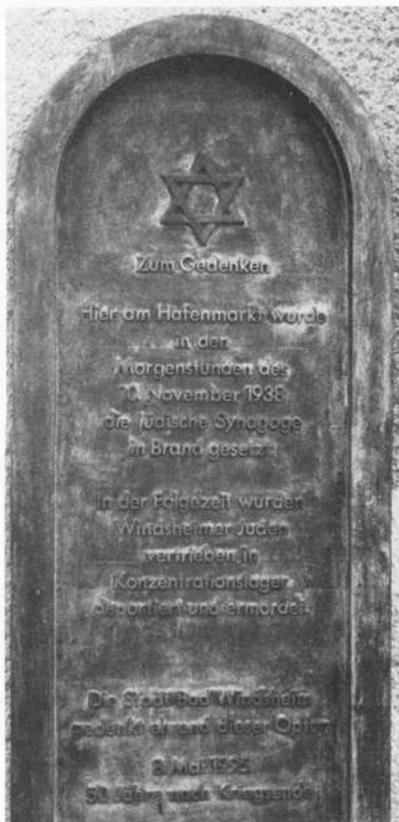 Zum Gedenken
Hier am Hafenmarkt wurde
in den
Morgenstunden des
10. November 1938
die jüdische Synagoge
in Brand gesetzt
In der Folgezeit wurden
Windsheimer Juden
vertrieben in
Konzentrationslager
deportiert und ermordet
Die Stadt Bad Windsheim
gedenkt ehrend dieser Opfer
8. Mai 1995
50 Jahre nach Kriegsende